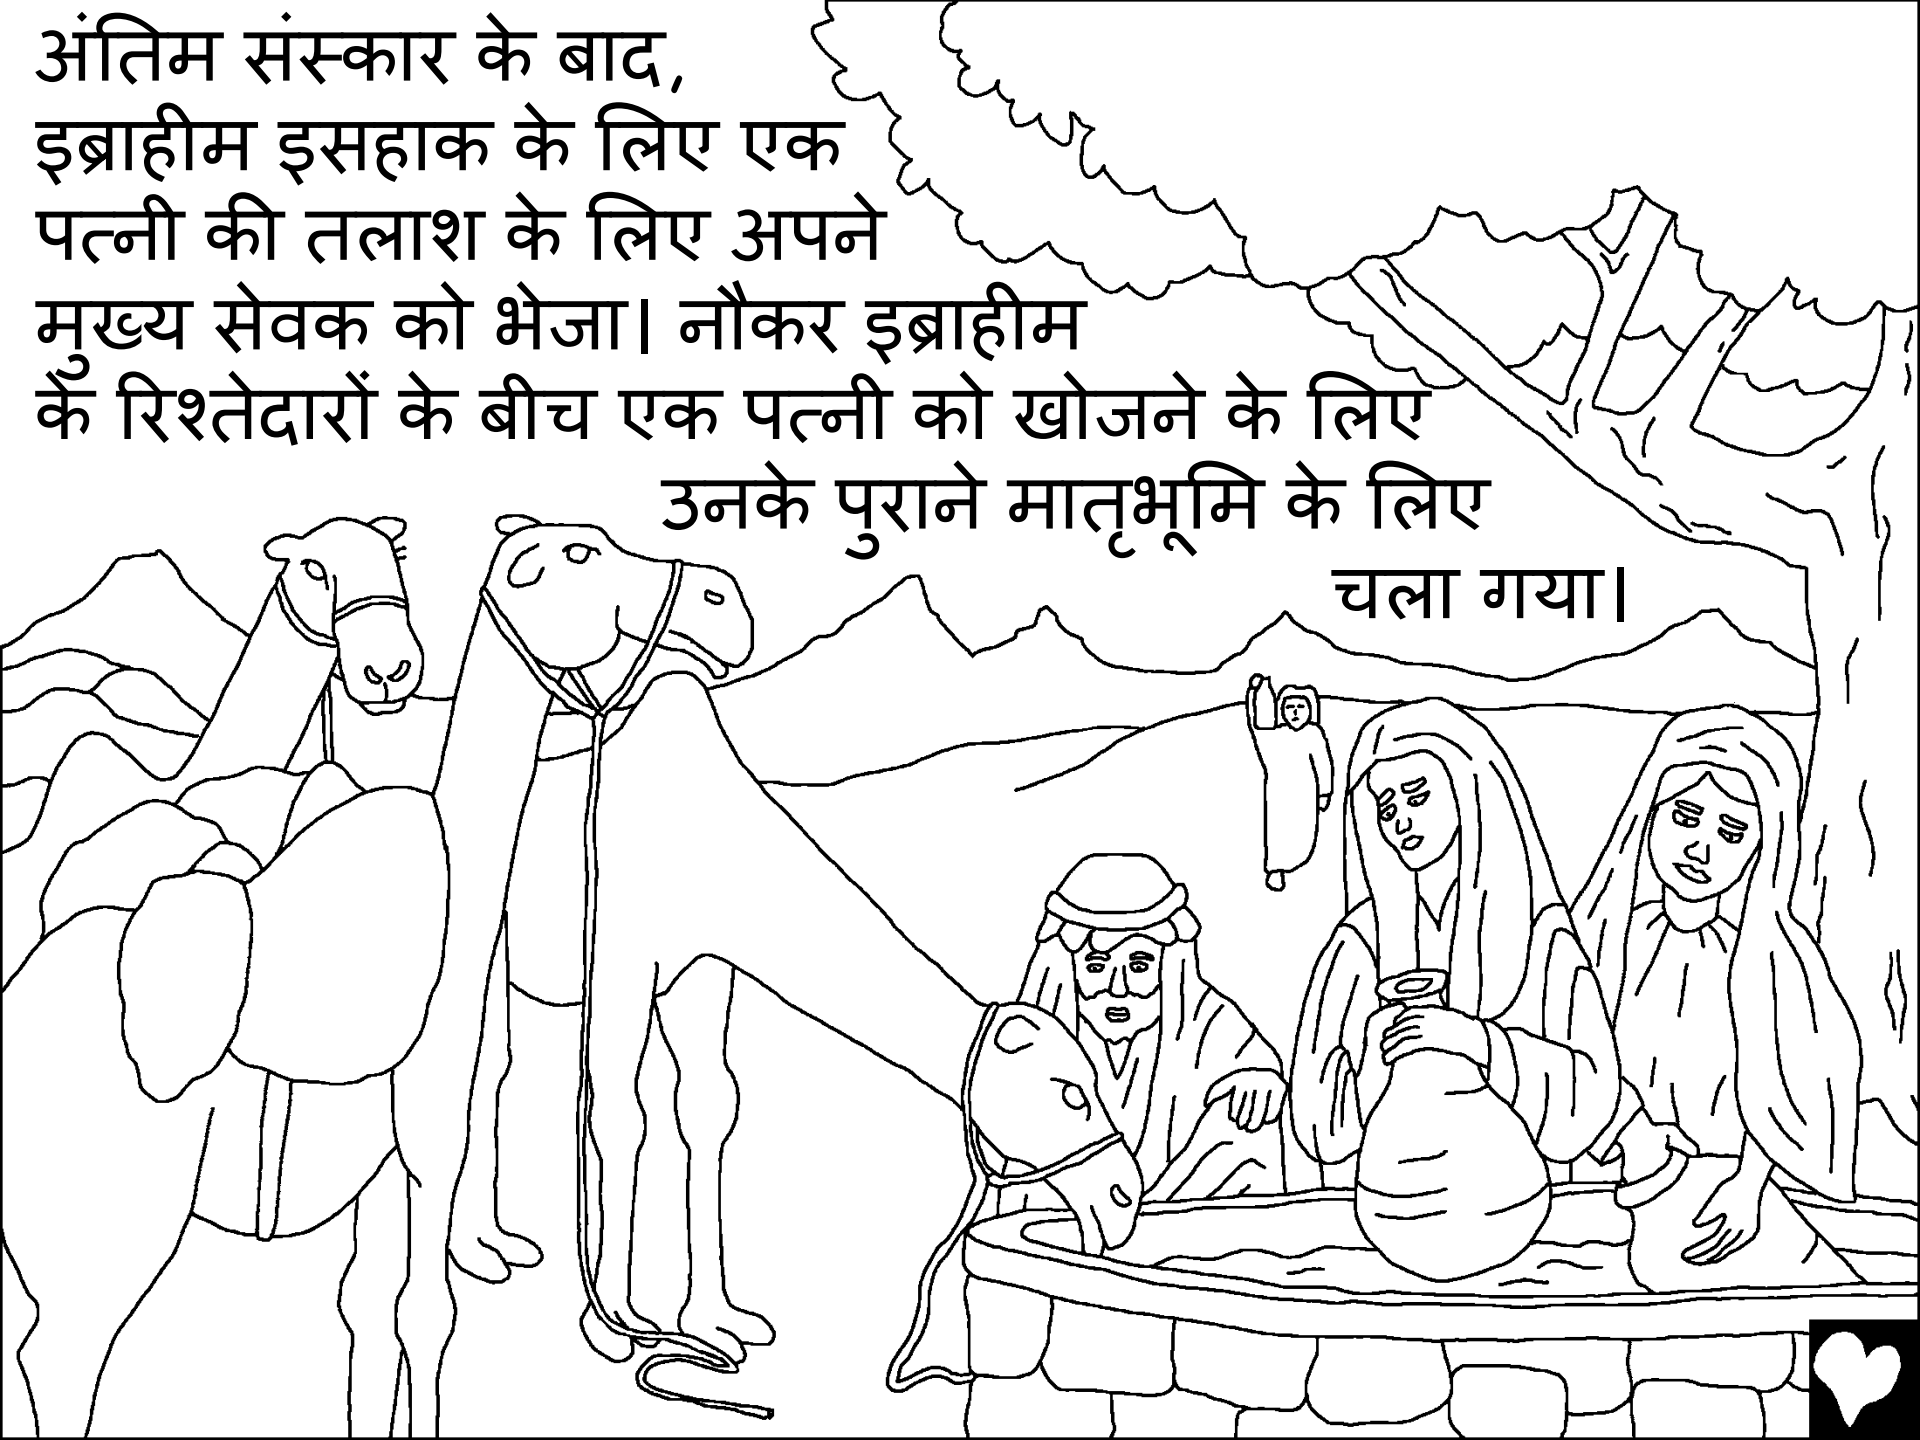 अंतिम संस्कार के बाद,
इब्राहीम इसहाक के लिए एक
पत्नी की तलाश के लिए अपने
मुख्य सेवक को भेजा। नौकर इब्राहीम
के रिश्तेदारों के बीच एक पत्नी को खोजने के लिए
उनके पुराने मातृभूमि के लिए
चला गया।